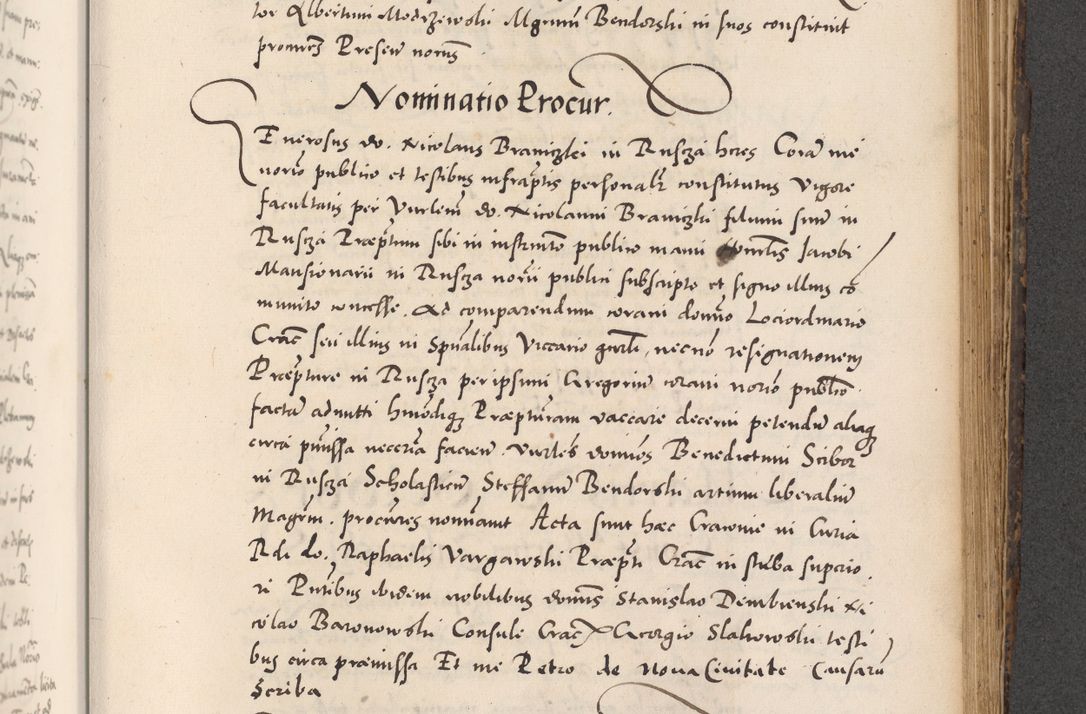 tor Albertum Modrzewski Mgrum Bendorski in suos constituit
procures Presen norus
Nominatio Procur.
Enerosus do. Nicolaus Braniczki in Rusczá heres Corā me
norio publico et testibus infrāptis personalr constitutus Vigore
facultatis per Vnrlem do. Nicolaum Braniczki filium suū in
Rusczá Præptum sibi in instrumto publico manu Jacobi
Mansionarii in Rusza norii publici subscripto et signo illius cō
munito concesse. Ad comparendum coram domno Lociordinario
Crac seu illius in Spualibus Viccario gnrli, necnō resignationem
Præpture in Rusza per ipsum Gregoriū coram norio publco
factā admitti hmōdiq Præpturam vaccare decerni petendū aliaq
circa pmissa necceria faciend. Vnrles domnos Benedictum Scibor
in Rusczá Scholasticū Steffanū Bendorski artium liberaliū
Magrm. procures nominavit Acta sunt hæc Cracovie in Curia
Rdi do. Raphaelis Vargawski Præpti Crac in stuba superio
ri Pntibus ibidem nobilibus domnis Stanislao Dembienski Ni
colao Baronowski Consule Crac Georgio Slakowski testi
bus circa præmissa Et me Petro de Noua Ciuitate Causarū
Scriba